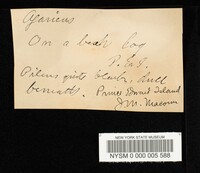 Agaricus
On a beech log
P. E. I.
Pileus quite black, dull
beneath. Prince Edward Island
J. M. Macoun
NEW YORK STATE MUSEUM
NYSM 0 000 005 588